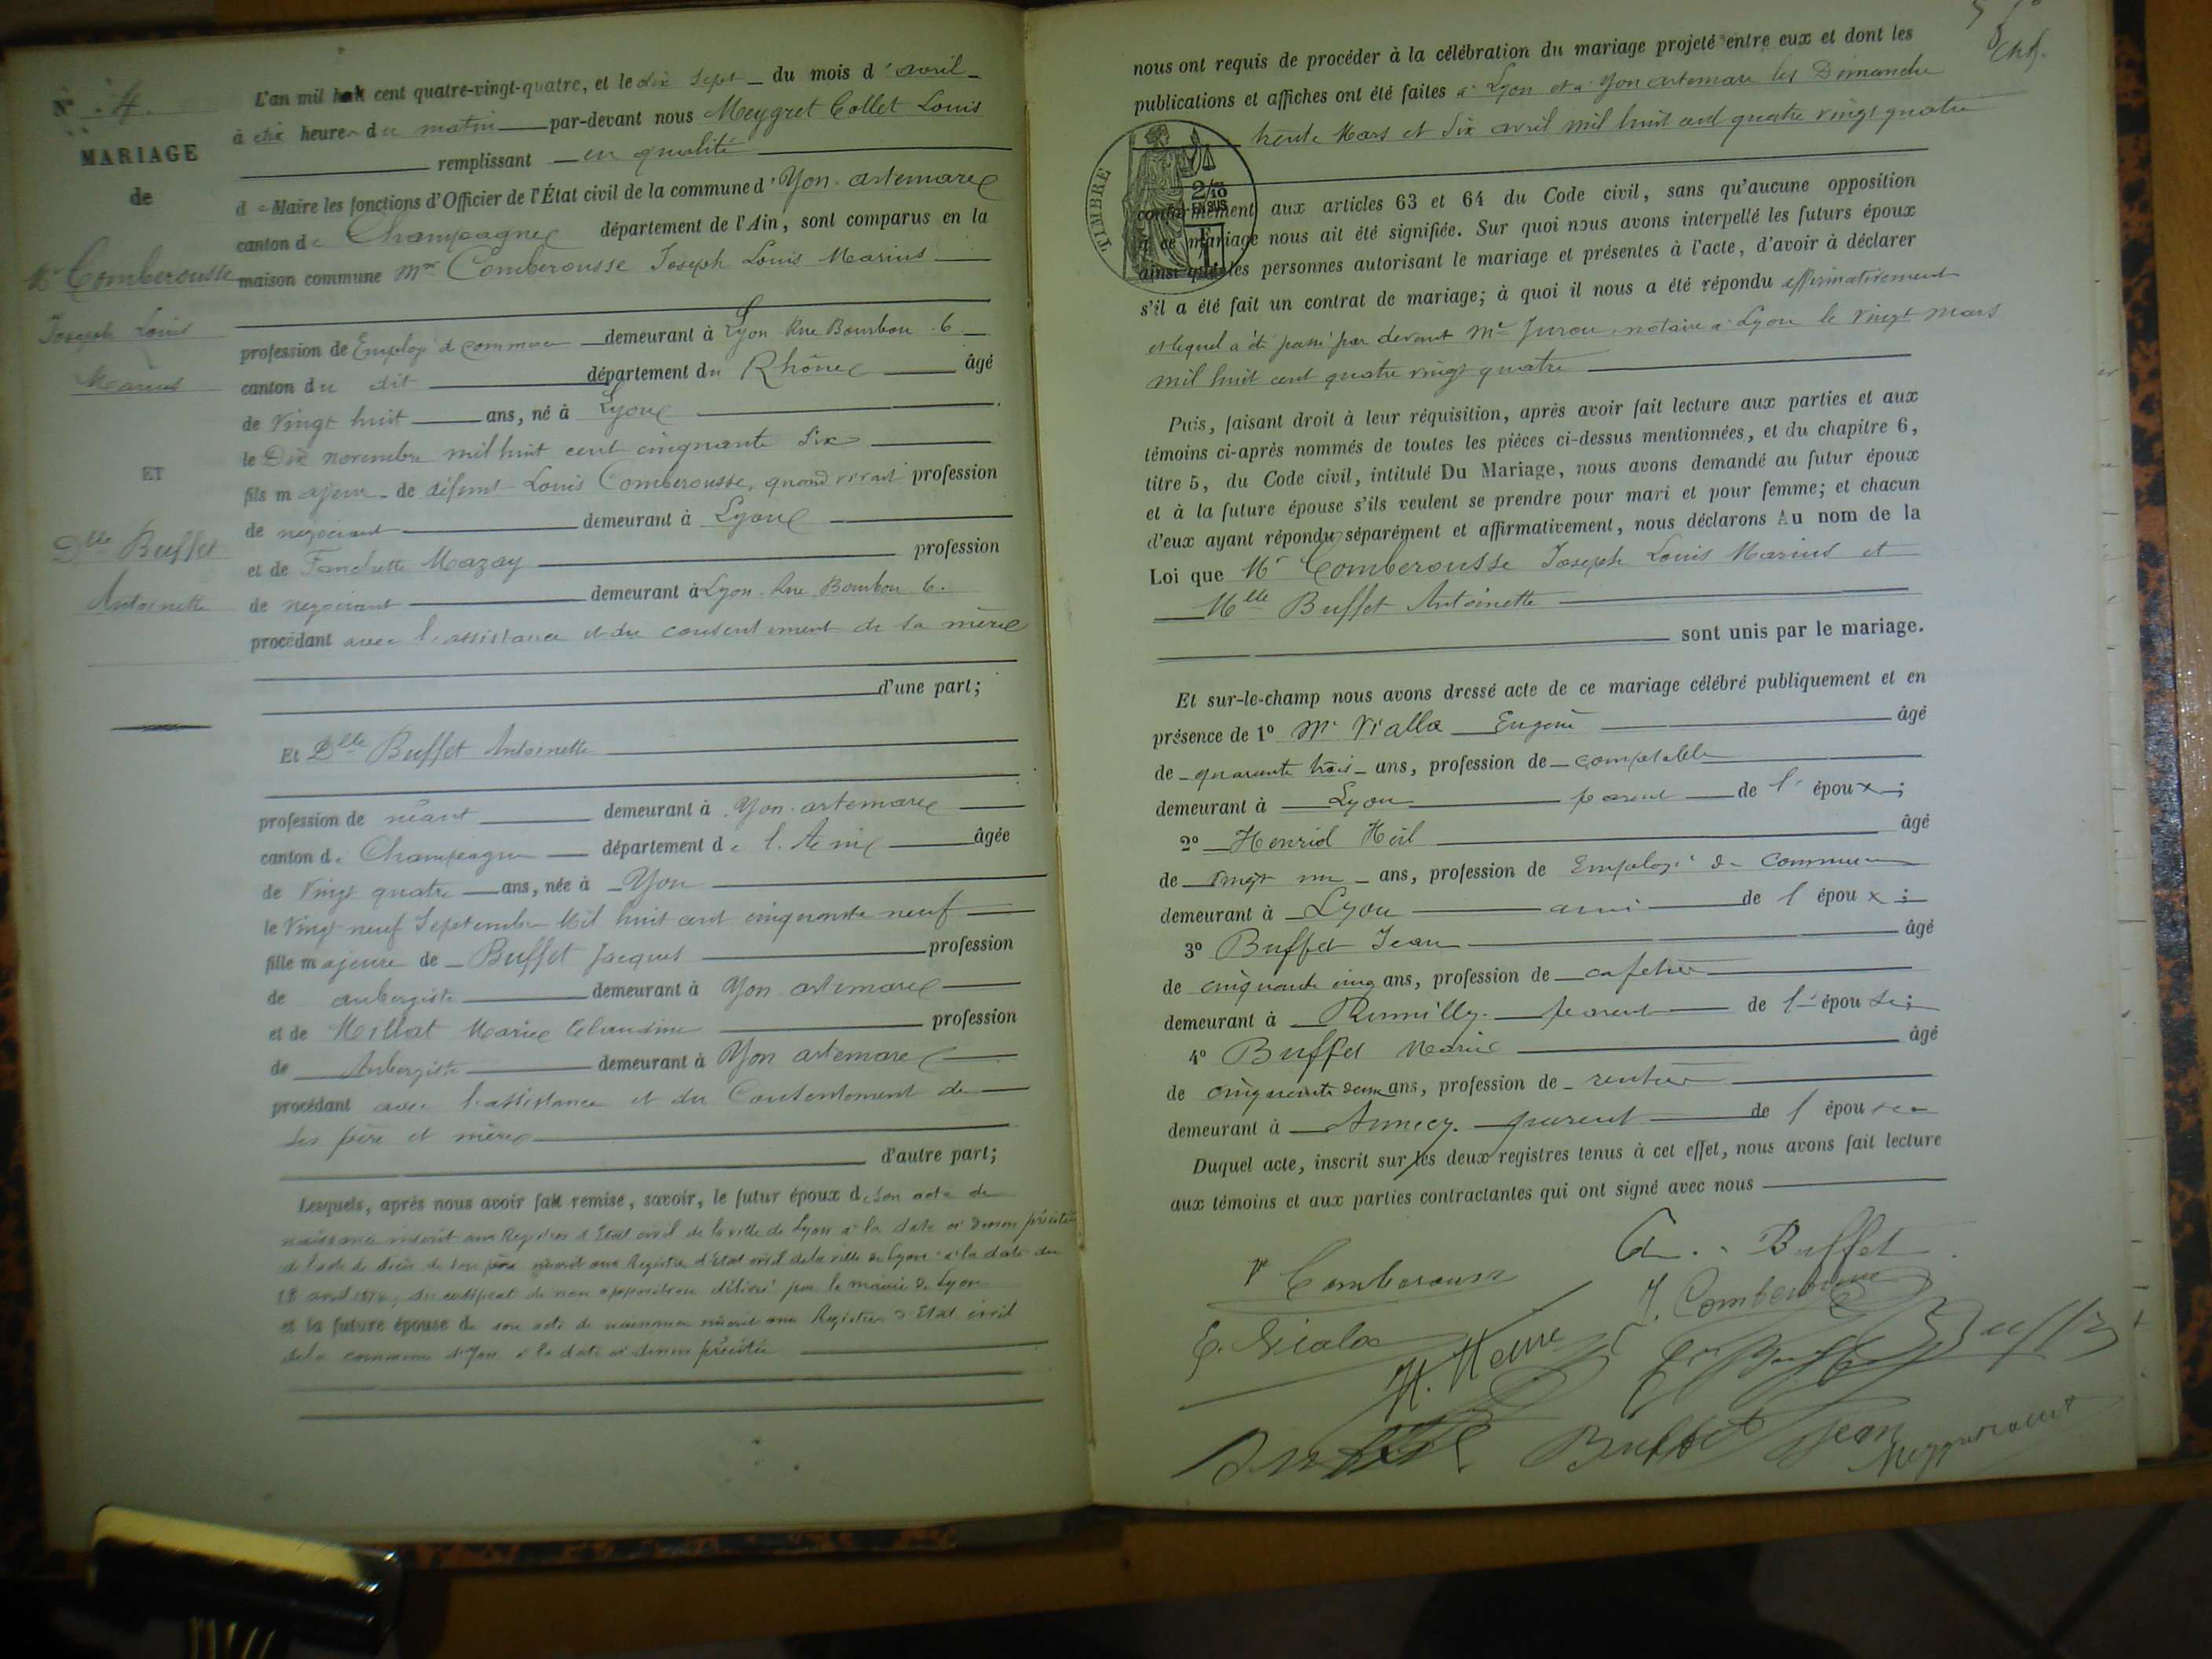 N° 4.
MARIAGE
de
Mr Comberousse
Joseph Louis
Marius
ET
Dlle Buffet
Antoinette
L'an mil huit cent quatre-vingt-quatre, et le dix sept du mois d'avril
à dix heures du matin par-devant nous Meygret Collet Louis
remplissant en qualité
de Maire les fonctions d'Officier de l'État civil de la commune d'Yon-artemare
canton de Champagne département de l'Ain, sont comparus en la
maison commune Mr Comberousse Joseph Louis Marius
profession de Employé de commerce demeurant à Lyon Rue Bourbon 6
canton du dit département du Rhône âgé
de vingt huit ans, né à Lyon
le Dix novembre mil huit cent cinquante six
fils majeur de défunt Louis Comberousse, quand vivait profession
de négociant demeurant à Lyon
et de Fanchette Mazay profession
de négociant demeurant à Lyon Rue Bourbon 6.
procédant avec l'assistance et du consentement de sa mère
d'une part;
Et Dlle Buffet Antoinette
profession de néant demeurant à Yon-artemare
canton de Champagne département de l'Ain âgée
de vingt quatre ans, née à Yon
le vingt neuf Septembre Mil huit cent cinquante neuf
fille majeure de Buffet Jacques profession
de aubergiste demeurant à Yon artemare
et de Millat Marie Claudine profession
de Aubergiste demeurant à Yon artemare
procédant avec l'assistance et du Consentement de
ses père et mère
d'autre part;
Lesquels, après nous avoir fait remise, savoir, le futur époux de son acte de
naissance inscrit aux Registres d'Etat civil de la ville de Lyon à la date ci dessus précitée
de l'acte de décès de son père inscrit aux Registres d'Etat civil de la ville de Lyon à la date du
18 avril 1874, du certificat de non opposition délivré par le maire de Lyon
et la future épouse de son acte de naissance inscrit aux Registres d'Etat civil
de la commune d'Yon à la date ci dessus précitée
nous ont requis de procéder à la célébration du mariage projeté entre eux et dont les
publications et affiches ont été faites à Lyon et à Yon artemare les Dimanche
trente Mars et six avril mil huit cent quatre vingt quatre
TIMBRE
2/10
EN SUS
conformément aux articles 63 et 64 du Code civil, sans qu'aucune opposition
à ce mariage nous ait été signifiée. Sur quoi nous avons interpellé les futurs époux
ainsi que les personnes autorisant le mariage et présentes à l'acte, d'avoir à déclarer
s'il a été fait un contrat de mariage; à quoi il nous a été répondu affirmativement
et lequel a été passé par devant Me Juron notaire à Lyon le vingt mars
mil huit cent quatre vingt quatre
Puis, faisant droit à leur réquisition, après avoir fait lecture aux parties et aux
témoins ci-après nommés de toutes les pièces ci-dessus mentionnées, et du chapitre 6,
titre 5, du Code civil, intitulé Du Mariage, nous avons demandé au futur époux
et à la future épouse s'ils veulent se prendre pour mari et pour femme; et chacun
d'eux ayant répondu séparément et affirmativement, nous déclarons Au nom de la
Loi que Mr Comberousse Joseph Louis Marius et
Mlle Buffet Antoinette
sont unis par le mariage.
Et sur-le-champ nous avons dressé acte de ce mariage célébré publiquement et en
présence de 1° Mr Vialla Eugène âgé
de quarante trois ans, profession de comptable
demeurant à Lyon parent de l'époux;
2° Henrid Heil âgé
de vingt un ans, profession de Employé de commerce
demeurant à Lyon ami de l'époux;
3° Buffet Jean âgé
de cinquante cinq ans, profession de cafetier
demeurant à Rumilly parent de l'épouse;
4° Buffet Marie âgé
de cinquante deux ans, profession de rentier
demeurant à Annecy. parent de l'épouse
Duquel acte, inscrit sur les deux registres tenus à cet effet, nous avons fait lecture
aux témoins et aux parties contractantes qui ont signé avec nous
A. Buffet
Ve Comberousse
J. Comberousse
E. Viala
Buffet
Buffet Jean
Meygretcollet